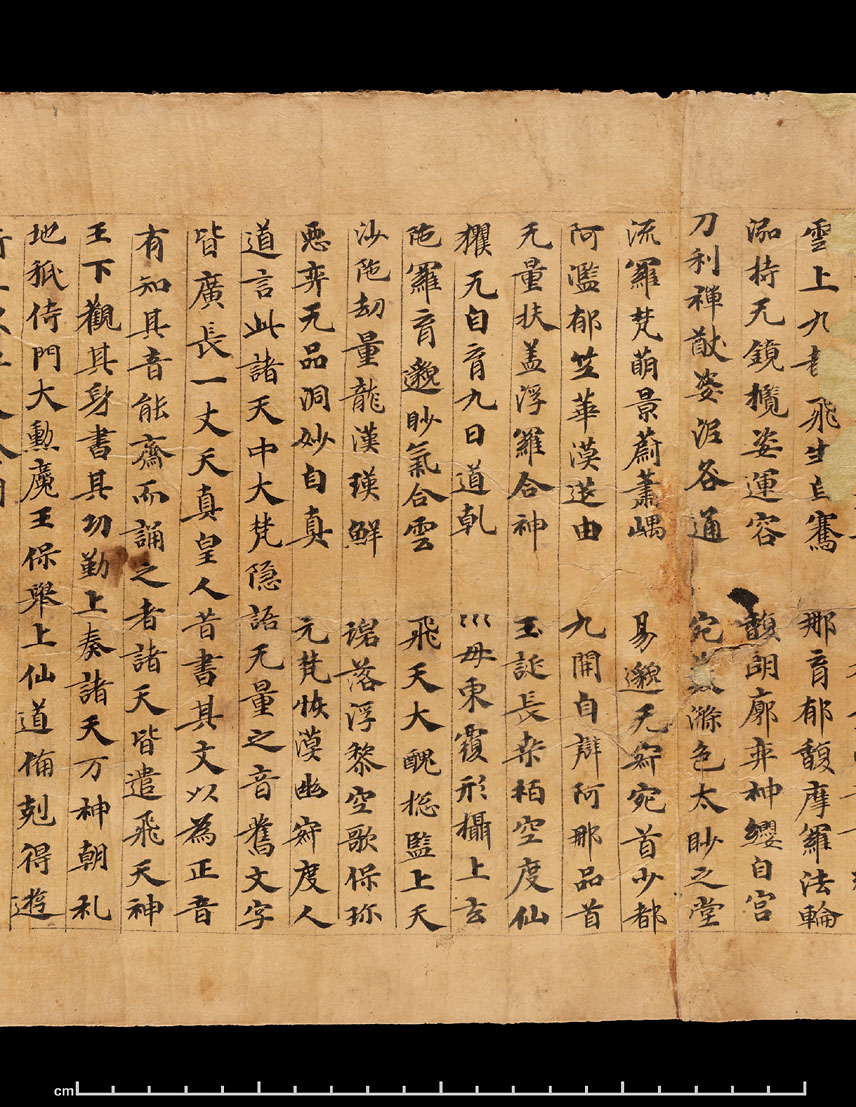 雲上九飛生自騫　那育郁馥摩羅法輪
泓持无鏡攬姿運容　馥朗廓弈神纓自宮
刀利禪猷姿泥咎通　宛藪滌色太眇之堂
流羅梵萌景蔚蕭嵎　易邈无寂宛首少都
阿濫郁竺華漠莚由　九開自辯阿那品首
无量扶蓋浮羅合神　玉誕長桒栢空度仙
玃无自育九日道乹　巛母東覆形攝上玄
陁羅育邈眇氣合雲　飛天大醜揔監上天
沙陁劫量龍漢瑛鮮　落浮黎空歌保珎
惡弈无品洞妙自真　元梵恢漠幽寂度人
道言此諸天中大梵隱語无量之音舊文字
皆廣長一丈天真皇人昔書其文以為正音
有知其音能齋而誦之者諸天皆遣飛天神
王下觀其身書其功勤上奏諸天万神朝礼
地祇侍門大勳魔王保舉上仙道俻剋得遊